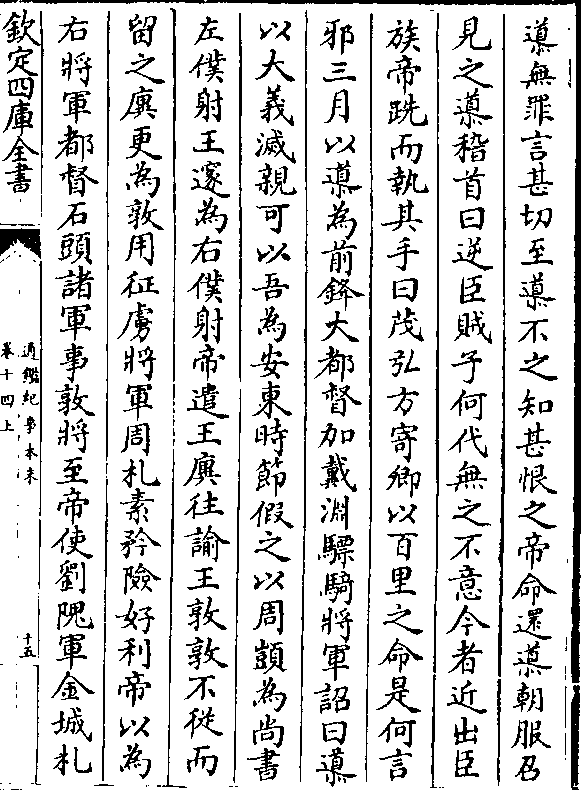 導無罪言甚切至導不之知甚恨之帝命還導朝服召
見之導稽首曰逆臣賊子何代無之不意今者近出臣
族帝跣而執其手曰茂弘方寄卿以百里之命是何言
邪三月以導為前鋒大都督加戴淵驃騎將軍詔曰導
以大義滅親可以吾為安東時節假之以周顗為尚書
左僕射王邃為右僕射帝遣王廙往諭王敦敦不從而
留之廙更為敦用征虜將軍周札素矜險好利帝以為
右將軍都督石頭諸軍事敦將至帝使劉隗軍金城札
欽定四庫全書
通鑑紀事本末
卷十四上
十五